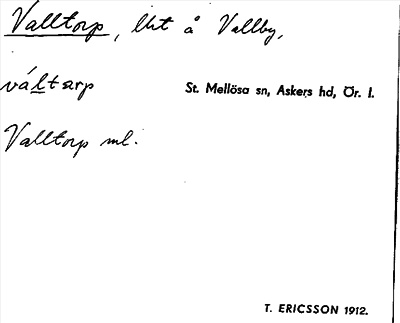 Valltorp, lht å Vallby,
váltarp
St. Mellösa sn, Askers hd, Ör. l.
Valltorp ml.
T. ERICSSON 1912.